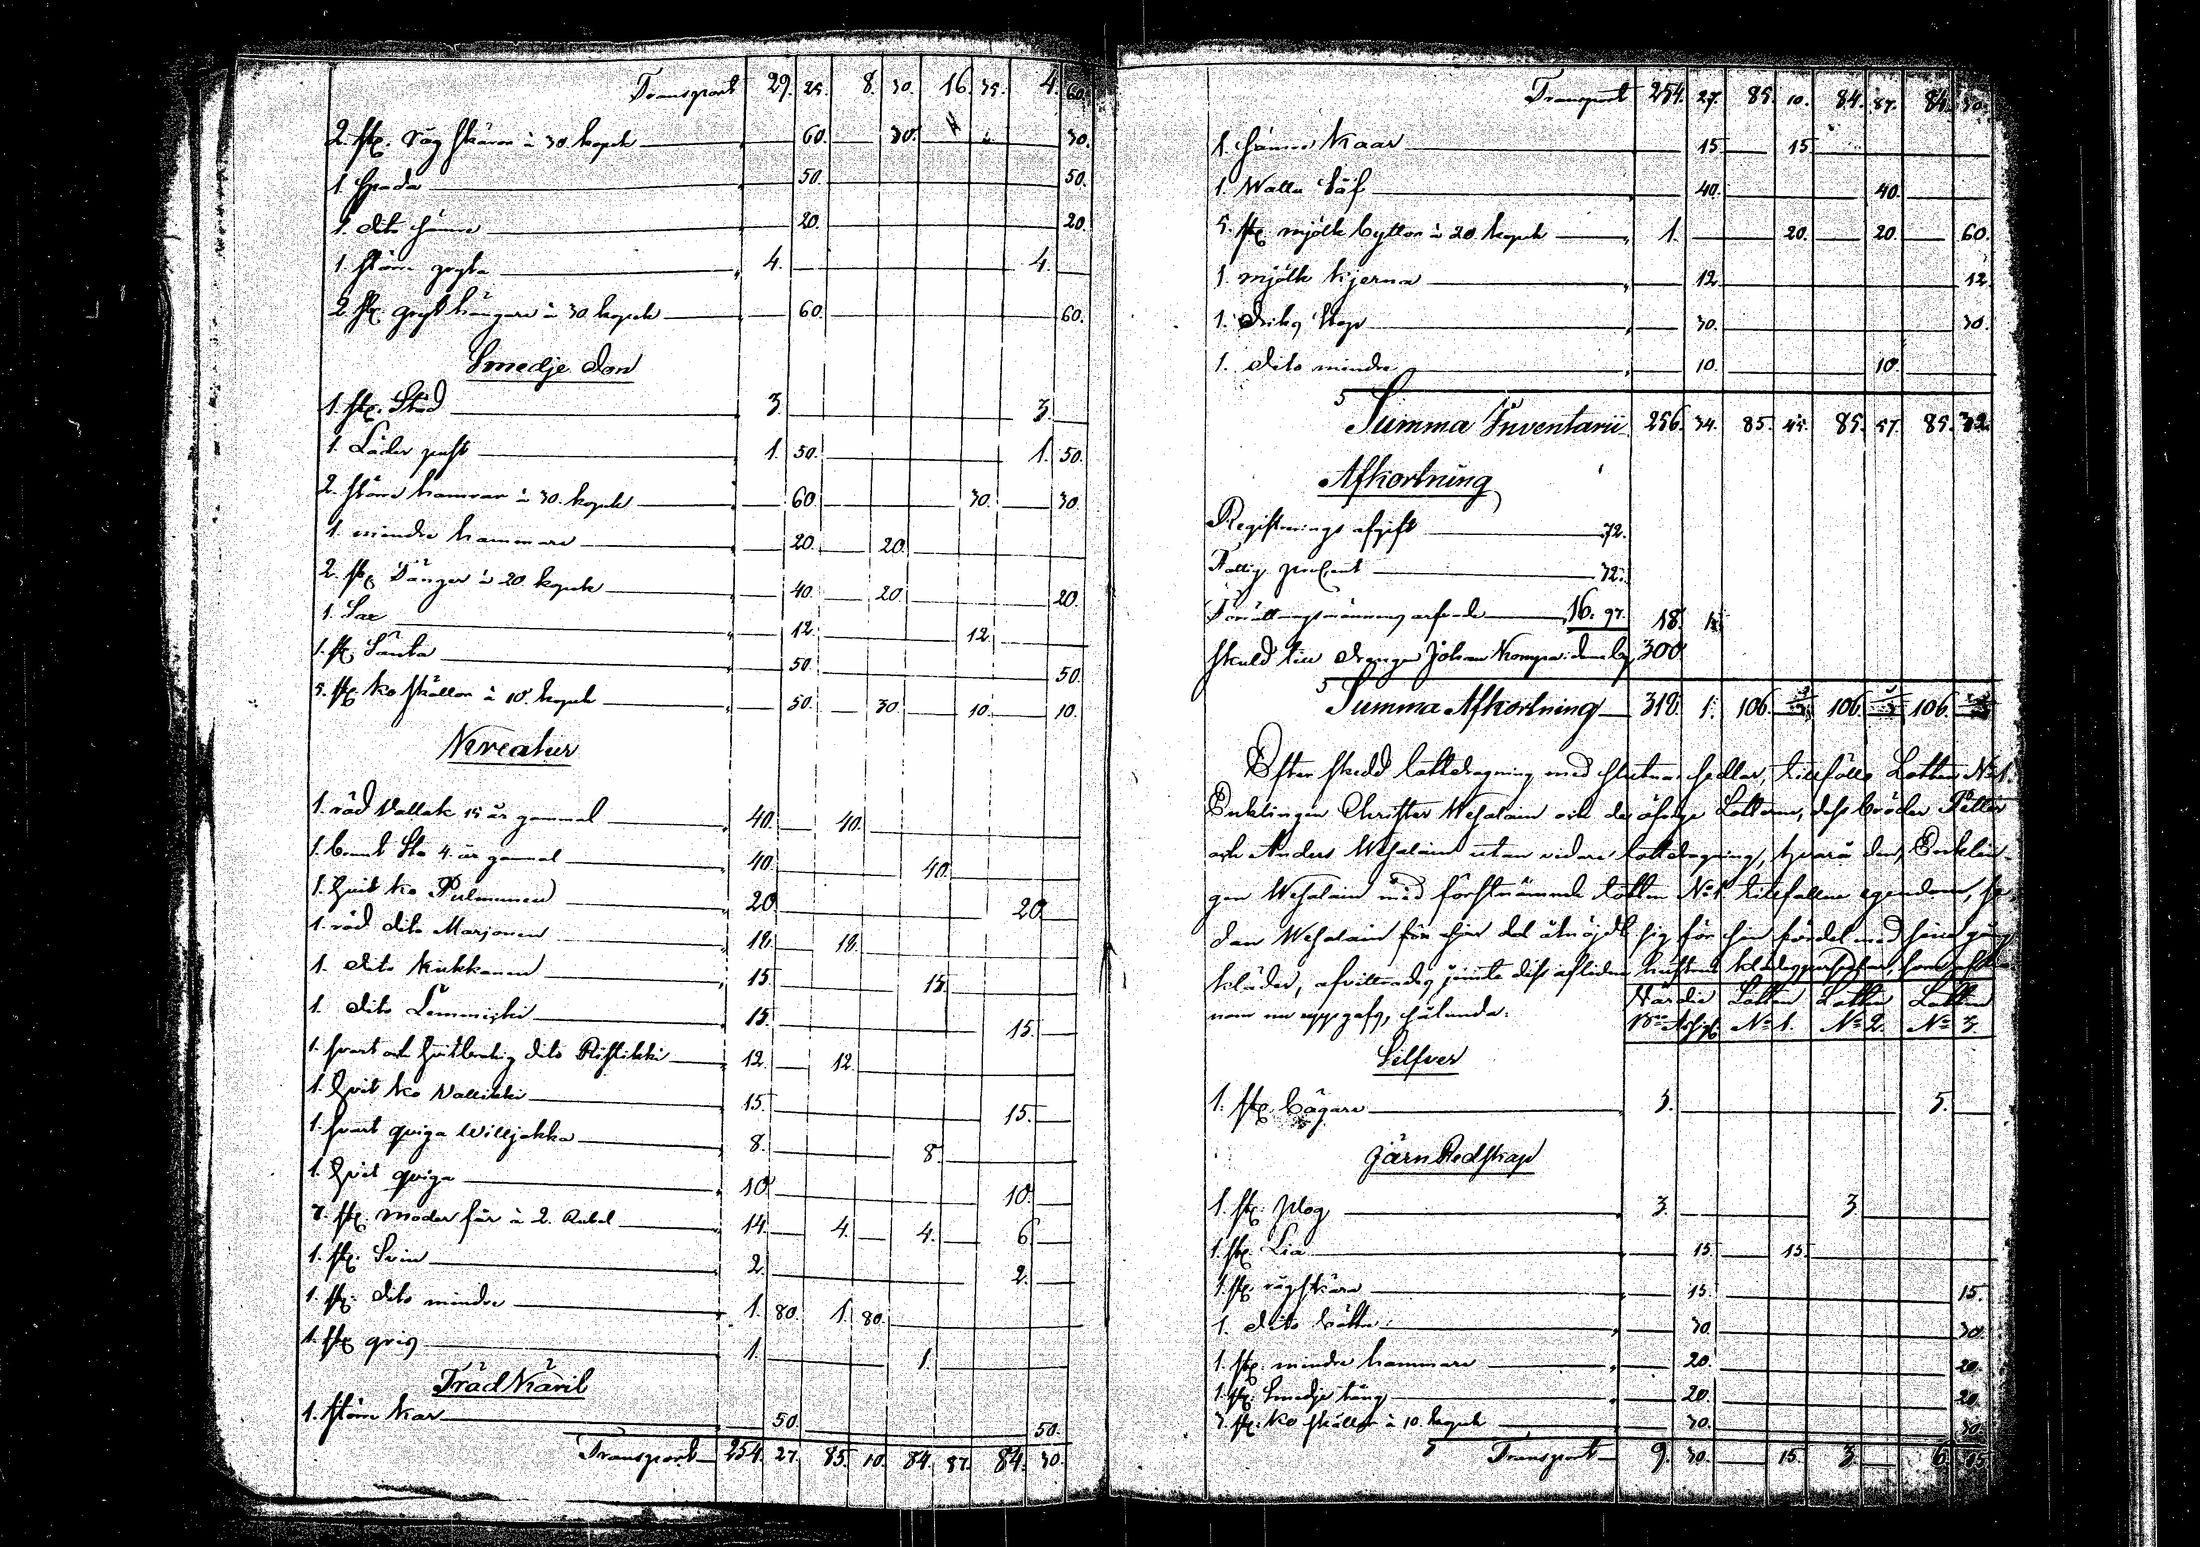 Transport 29. 25. 8. 30. 16. 35. 4. 60.
2. st. råg skäror à 30 kopek 60. 30. 30.
1. Spada 50. 50.
1. dito sämre 20. 20.
1. större gryta 4. 4.
2. st. gryt hängare à 30 kopek 60. 60.
Smedje don
1. st. Städ 3. 3.
1. Läder pust 1. 50. 1. 50.
2. större hamrar à 30. kopek 60. 30. 30.
1. mindre hammare 20. 20.
2. st. Tänger à 20. kopek 40. 20. 20.
1. Sax 12. 12.
1. st. 50. 50.
5. st. ko skällor à 10. kopek 50. 30. 10. 10.
Kreatur
1. röd Vallak 15 år gammal 40. 40.
1. brunt Sto 4. år gammal 40. 40.
1. hvit ko Pulmunen 20. 20.
1. röd dito Marjonen 18. 18.
1. dito Kirkkonen 15. 15.
1. dito Lemmikki 15. 15.
1. svart och hvitbrokig dito Ristikki 12. 12.
1. hvit ko Vallikki 15. 15.
1. svart qviga Willjakka 8. 8.
1. hvit qviga 10. 10.
7. st. moder får à 2. Rubel 14. 4. 4. 6.
1. st. Svin 2. 2.
1. st. dito mindre 1. 80. 1. 80.
1. st. gris 1. 1.
Träd Käril
1. större kar 50. 50.
Transport 254. 27. 85. 10. 84. 87. 84. 30.
Transport 254. 27. 85. 10. 84. 87. 84. 30.
1. sämre Kaar 15. 15.
1. Walla 40. 40.
5. st. mjölk byttor à 20. kopek 1. 20. 20. 60.
1. mjölk kjerna 12. 12.
1. driks stop 30. 30.
1. dito mindre 10. 10.
Summa Inventarii 256. 34. 85. 45. 85. 57. 85. 32.
Afkortning
Registrerings afgift 72.
Fattig procent 72.
Förrättningsmännens arfvode 16. 97. 18.
Skuld till drängen Johan 300
Summa Afkortning 318. 1. 106. 106. 106.
Efter skedd lottdragning med slutna sedlar, tillföllo Lotten No 1.
Enklingen Christer och de öfrige Lotterne, dess bröder Petter
och Anders utan vidare lottdragning, hvarå den, Enklin-
gen med förstnämnde lotten No 1. tillfallne egendom,
dan för sin del åtnöjdt sig för sin fördel med sina gång
kläder, jemte dess aflidna hustrus
nom nu uppgafs, sålunda:
Värdie Lotten Lotten Lotten
No 1. No 2. No 3.
Silfver
1. st. bägare 5. 5.
Järn Redskap
1. st. plog 3. 3.
1. st. Lia 15. 15.
1. st. rågskära 15. 15.
1. dito bättre 30. 30.
1. st. mindre hammare 20. 20.
1. st. Smedje tång 20. 20.
3. st. ko skällor à 10. kopek 30. 30.
Transport 9. 30. 15. 3. 6. 15.